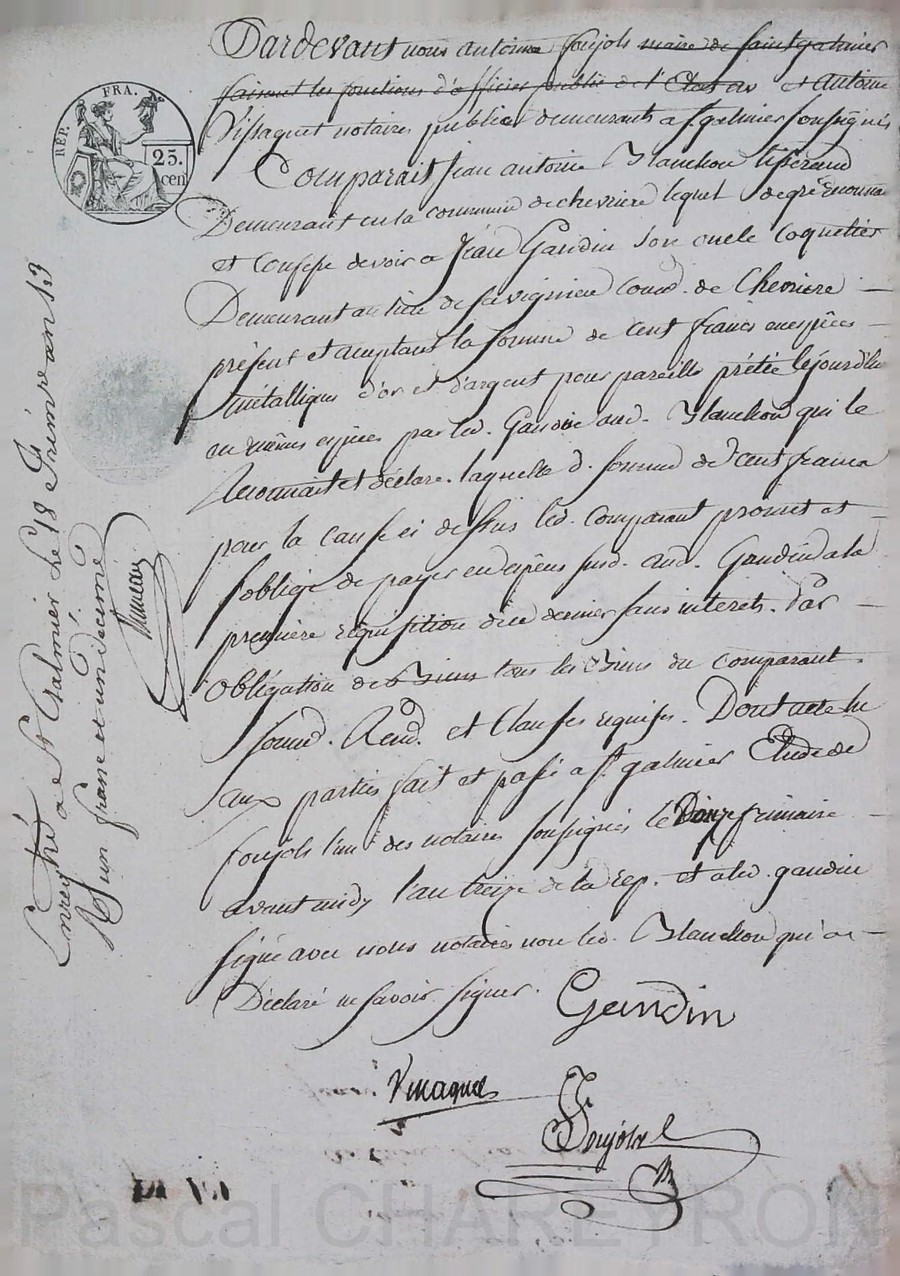 RÉP. FRA.
25.
cen
Pardevant nous antoine Soujols maire de saint galmier
faisant les fonctions d'officier public de l'Etat et antoine
notaires publics demeurants a St galmier soussignés
Comparait Jean antoine Blanchon tisserand
Demeurant en la commune de chevriere lequel de gré reconnait
et confesse devoir a Jean Gaudin son oncle Coquetier
Demeurant au lieu de la vignieu de Chevriere
présent et acceptant la somme de cent francs en espèces
métallique d'or et d'argent pour pareille prêtée cejourd'hui
en mêmes espèces par led. Gaudin aud. Blanchon qui le
Reconnait et déclare. laquelle d. somme de cent francs
pour la cause ci dessus led. comparant promet et
s'oblige de payer en espèces susd. aud. Gaudin a la
première réquisition de ce dernier sans interets. Par
obligation de Biens tous les Biens du comparant
soumd. Rend. et Clauses requises. Dont acte lu
aux parties fait et passé a St galmier Etude de
Soujols l'un des notaires soussignés le Douze frimaire
avant midy l'an treize de la rep. et a led. gaudin
signé avec nous notaires non led. Blanchon qui a
Déclaré ne savoir signer.
Gaudin
Soujols
Enregistré a St Galmier le 18 Frimre an 13
Reçu un franc et un decime
Pascal CHAREYRON